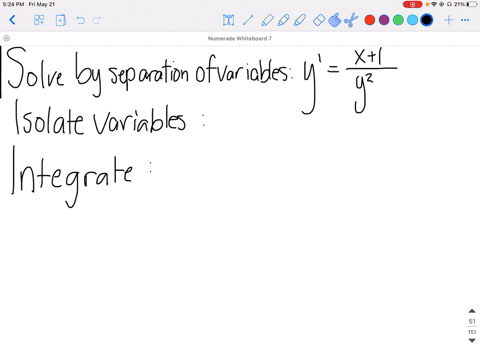 5:24 PM Fri May 21
21%
Numerade Whiteboard 7
Solve by separation of variables: y' = x+1 / y²
Isolate variables :
Integrate :
51
151